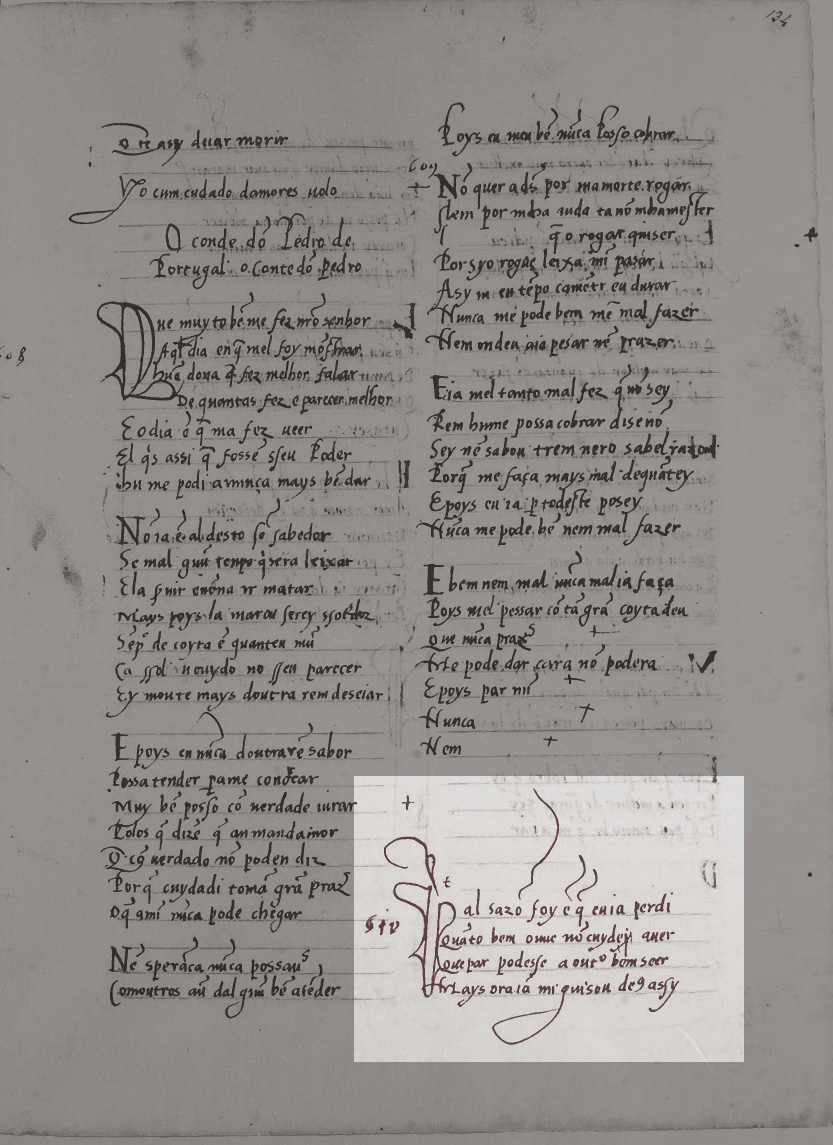 134
o te asy deuar morir
Vyo cum cudado damores uolo
O conde dō Pedro de
Portugal o. Conte dō pedro
608
Que muyto bē me fez nrō senhor
Aql̄ dia en q̄ mel foy mōstrar
hūa dona q̄ fez melhor falar
De quantas fez e parecer melhor
E o dia ē q̄ ma fez ueer
El q̄s assi q̄ fosse sseu Poder
hu me podia nunca mays bē dar
No ia ē al desto sō sabedor
Se mal guū tenpo q̄sera leixar
Ela
Mays poys la matou serey ssofedor
Sēp de coyta ē quanteu uiū
Ca ssol no ouydo no sseu parecer
Ey moute mays doutra rem deseiar
E poys eu nūca doutra rē sabor
Possatender pame confortar
Muy bē posso cō uerdade iurar
Polos q̄ dizē q̄ an mandamor
Q cō uerdado nō poden diz
Porq̄ cuydadi tomā grā praz
Oq̄ ami nūca pode chegar
Nē sperāca nūca possau
Comoutros aū dal gūu bē atēder
Poys eu meu bē nūca Posso cobrar
609
Nō quer a ds̄ por mamorte rogar
Nem por mha uida ta nō mhamester
q̄ o rogar quiser
Por syo rogue leixa mi pasar
Asy meu tēpo camētr eu durar
Nunca me pode bem nē mal fazer
Nem ondeu aia pesar nē prazer
E ia mel tanto mal fez q̄ nō sey
Rem hu me possa cobrar diseño
Sey nē sabou trem nero sabel
Porq̄ me faça mays mal dequātey
E poys eu ia p todeste posey
Nūca me pode bē nem mal fazer
E bem nem mal nūca mal ia faça
Poys mel pessar cō tā grā coyta deu
Que nūca praz
Me pode dar cara nō podera
E poys par mī
Nunca
Nem
610
Tal sazō foy ē q̄ eu ia perdi
Quāto bem ouue nō cuydey auer
Que par podesse a outº bem seer
Mays ora iā mi guisou deꝰ assy